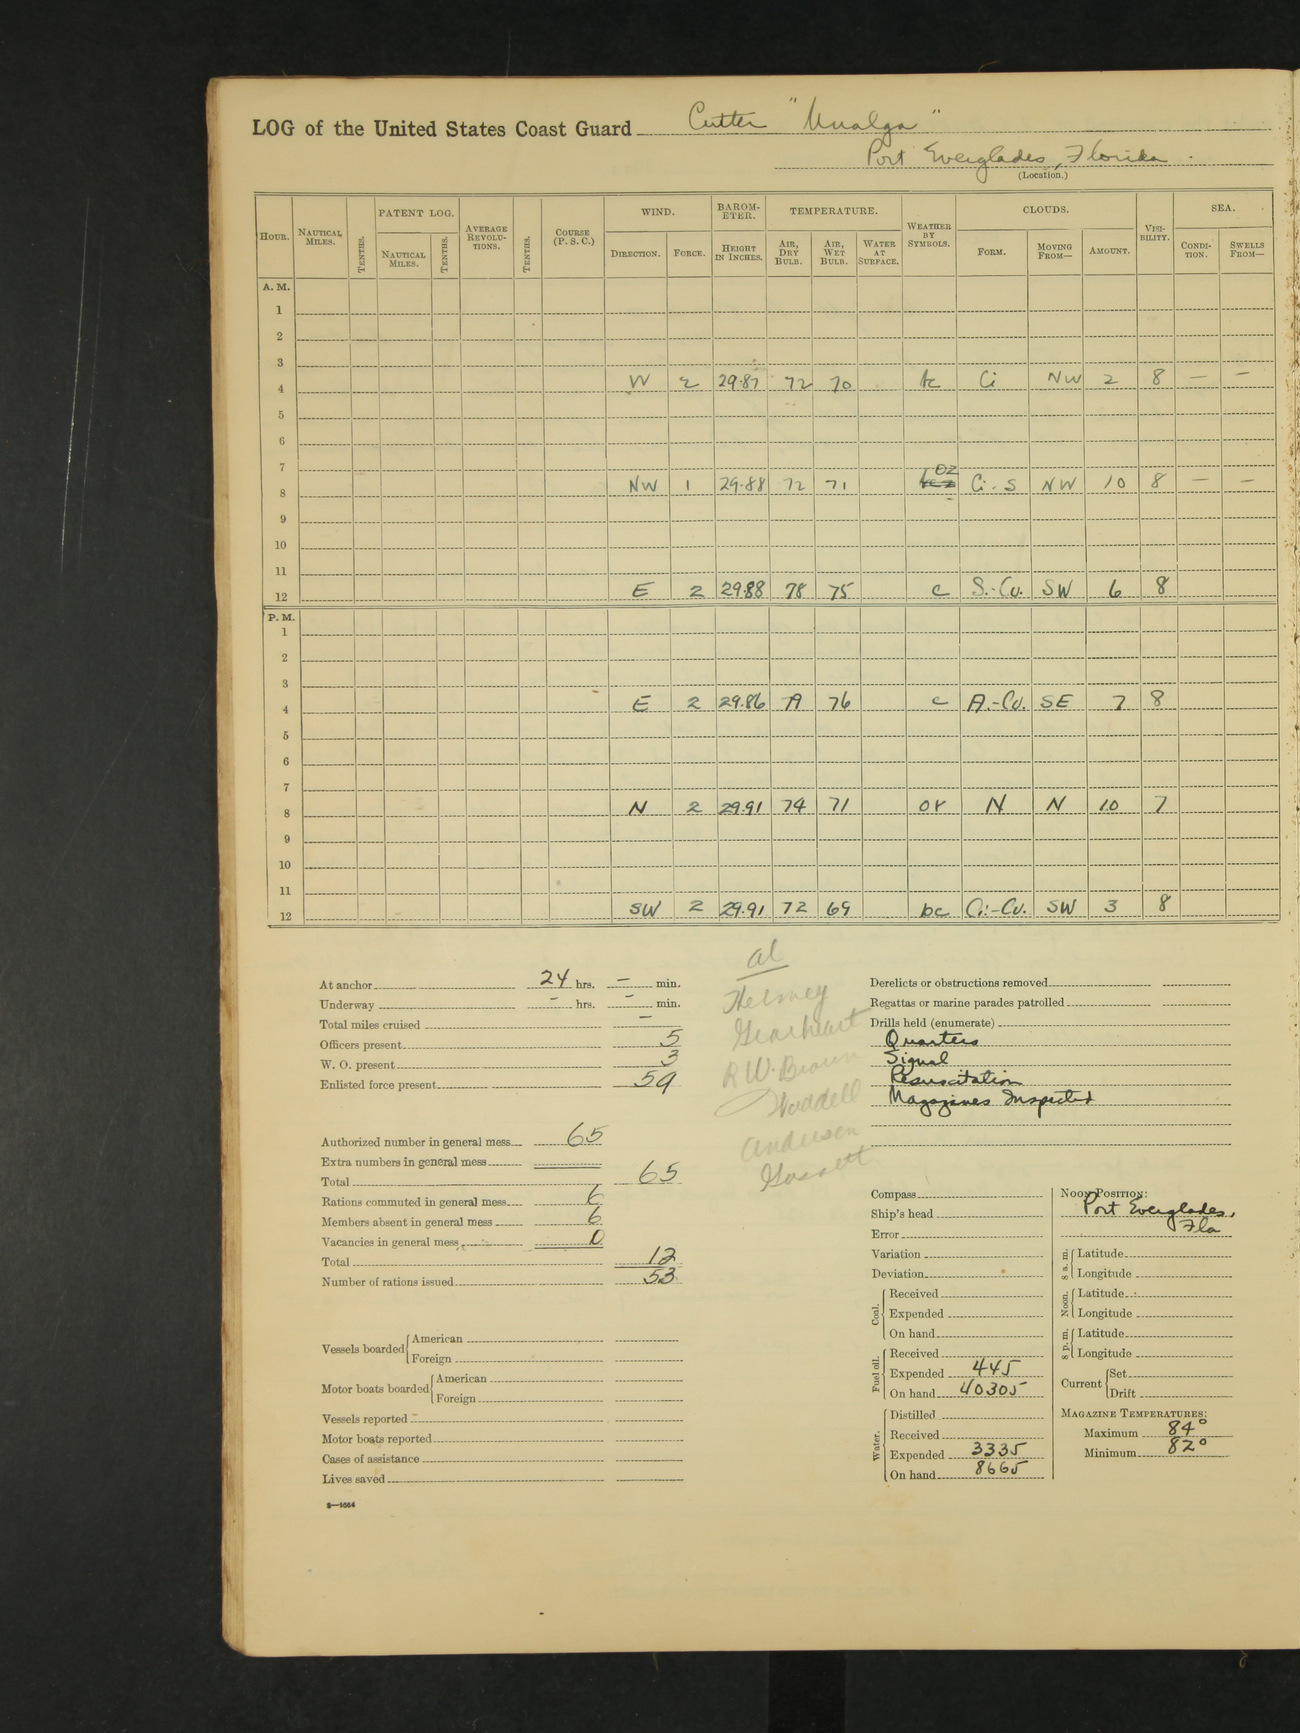 LOG of the United States Coast Guard Cutter "Unalga"
Port Everglades, Florida
(Location.)
HOUR. NAUTICAL MILES. TENTHS. PATENT LOG. NAUTICAL MILES. TENTHS. AVERAGE REVOLUTIONS. TENTHS. COURSE (P. S. C.) WIND. DIRECTION. FORCE. BAROMETER. HEIGHT IN INCHES. TEMPERATURE. AIR, DRY BULB. AIR, WET BULB. WATER AT SURFACE. WEATHER BY SYMBOLS. CLOUDS. FORM. MOVING FROM— AMOUNT. VISIBILITY. SEA. CONDITION. SWELLS FROM—
A. M.
1
2
3
4 W 2 29.87 72 70 bc Ci NW 2 8 — —
5
6
7
8 NW 1 29.88 72 71 oz Ci-S NW 10 8 — —
9
10
11
12 E 2 29.88 78 75 c S.-Cu. SW 6 8
P. M.
1
2
3
4 E 2 29.86 79 76 c A.-Cu. SE 7 8
5
6
7
8 N 2 29.91 74 71 or N N 10 7
9
10
11
12 SW 2 29.91 72 69 bc Ci.-Cu. SW 3 8
At anchor 24 hrs. — min.
Underway — hrs. — min.
Total miles cruised —
Officers present 5
W. O. present 3
Enlisted force present 59
Authorized number in general mess 65
Extra numbers in general mess
Total 65
Rations commuted in general mess 6
Members absent in general mess 6
Vacancies in general mess 0
Total 12
Number of rations issued 53
Vessels boarded American
Foreign
Motor boats boarded American
Foreign
Vessels reported
Motor boats reported
Cases of assistance
Lives saved
al
Gearheart
R W. Brown
Waddell
Andersen
Gossett
Derelicts or obstructions removed
Regattas or marine parades patrolled
Drills held (enumerate)
Quarters
Signal
Resuscitation
Magazines Inspected
Compass
Ship's head
Error
Variation
Deviation
Coal. Received
Expended
On hand
Fuel oil. Received
Expended 445
On hand 40305
Water. Distilled
Received
Expended 3335
On hand 8665
NOON POSITION:
Port Everglades,
Fla
8 a. m. Latitude
Longitude
Noon. Latitude
Longitude
8 p. m. Latitude
Longitude
Current Set
Drift
MAGAZINE TEMPERATURES:
Maximum 84°
Minimum 82°